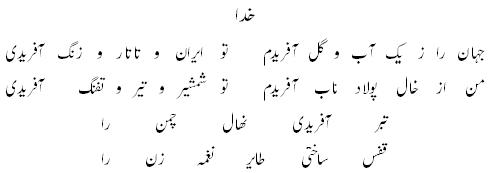 خدا
جہان را ز یک آب و گل آفریدم تو ایران و تاتار و زنگ آفریدی
من از خال پولاد ناب آفریدم تو شمشیر و تیر و تفنگ آفریدی
تبر آفریدی نھال چمن را
قفس ساختی طایرِ نغمہ زن را